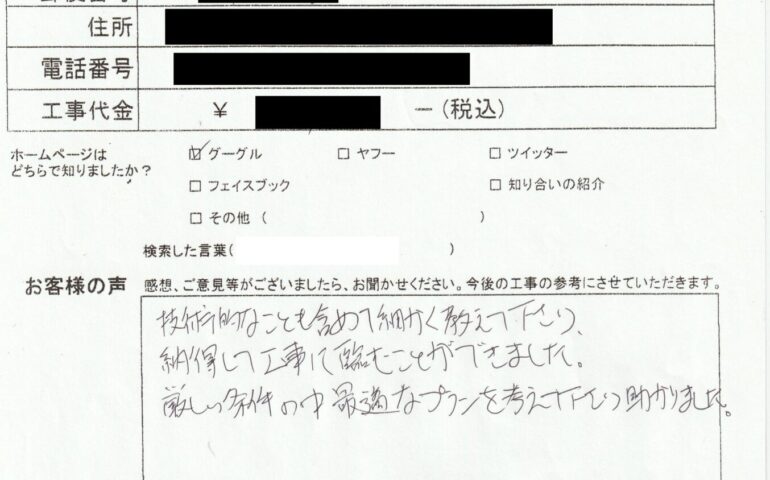 住所
電話番号
工事代金 ￥ ー(税込)
ホームページは
どちらで知りましたか？
☑ グーグル □ ヤフー □ ツイッター
□ フェイスブック □ 知り合いの紹介
□ その他 ( )
検索した言葉( )
お客様の声 感想、ご意見等がございましたら、お聞かせください。今後の工事の参考にさせていただきます。
技術的なことも含めて細かく教えて下さり、
納得して工事に臨むことができました。
厳しい条件の中最適なプランを考えて下さり助かりました。